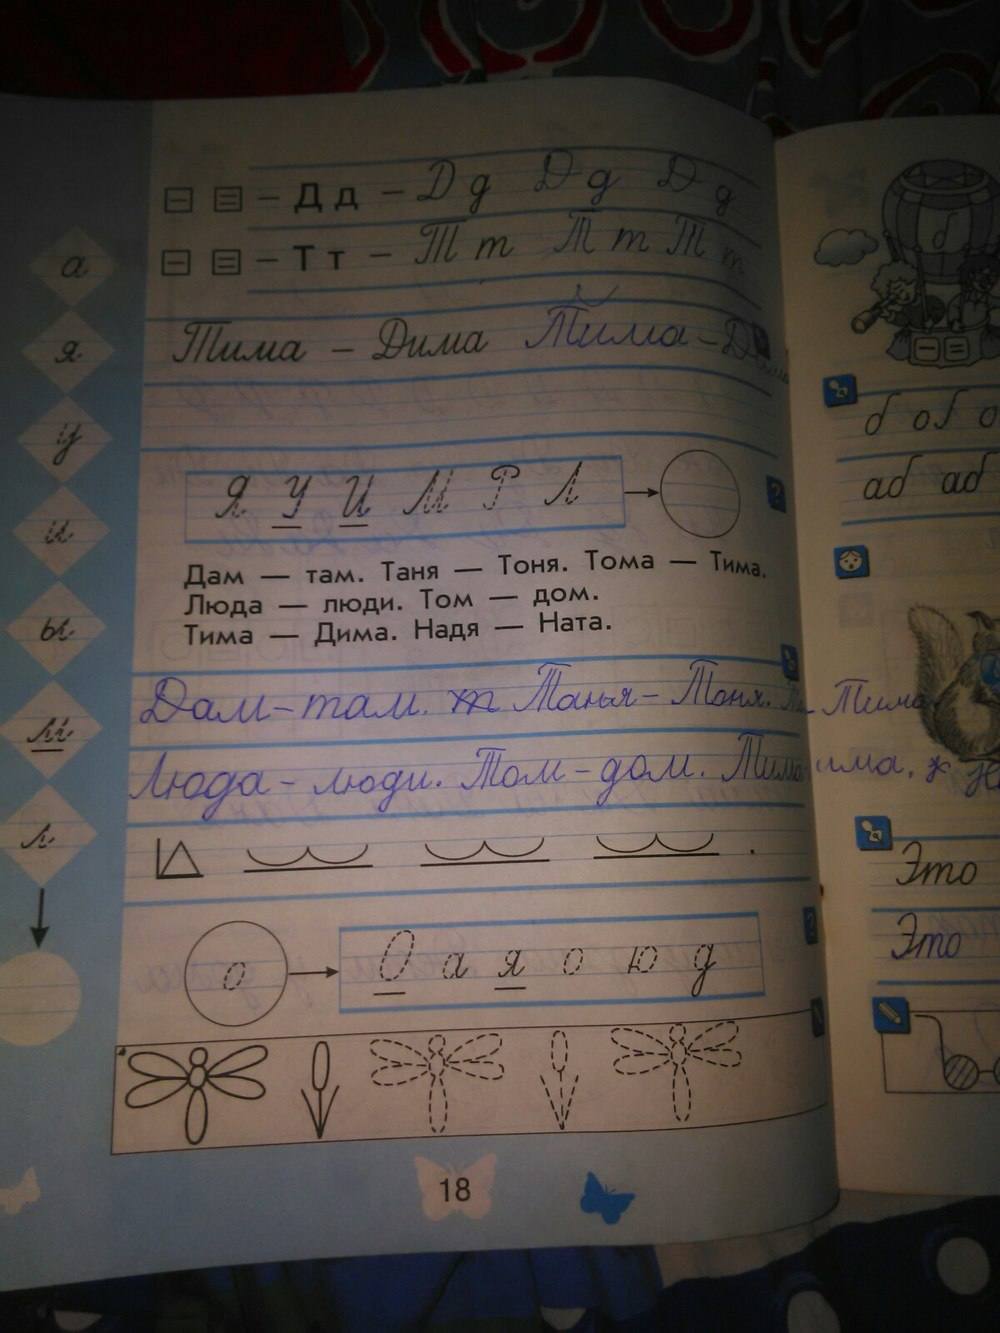 – Д д – Д д Д д Д д
– Т т – Т т Т т Т т
а
я
у
и
ы
м
л
Тима – Дима Тима – Дима
Я У И М Р Л
Дам — там. Таня — Тоня. Тома — Тима.
Люда — люди. Том — дом.
Тима — Дима. Надя — Ната.
Дам – там. Танья – Тоня. Тима
Люда – люди. Том – дом.
о
О а я о ю д
18
б об
аб аб
Это
Это